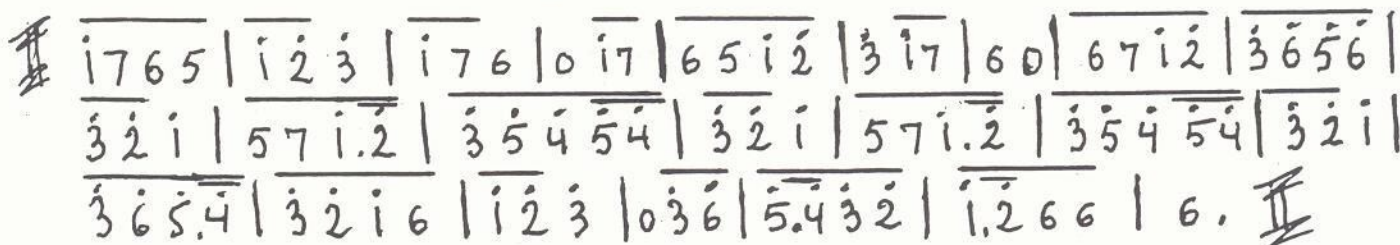 i 7 6 5 | i 2̇ 3̇ | i 7 6 | 0 i 7 | 6 5 i 2̇ | 3̇ i 7 | 6 0 | 6 7 i 2̇ | 3̇ 6̇ 5̇ 6̇ |
3̇ 2̇ i | 5 7 i . 2̇ | 3̇ 5̇ 4̇ 5̇ 4̇ | 3̇ 2̇ i | 5 7 i . 2̇ | 3̇ 5̇ 4̇ 5̇ 4̇ | 3̇ 2̇ i |
3̇ 6̇ 5̇ . 4̇ | 3̇ 2̇ i 6 | i 2̇ 3̇ | 0 3̇ 6̇ | 5̇ . 4̇ 3̇ 2̇ | i . 2̇ 6 6 | 6 .